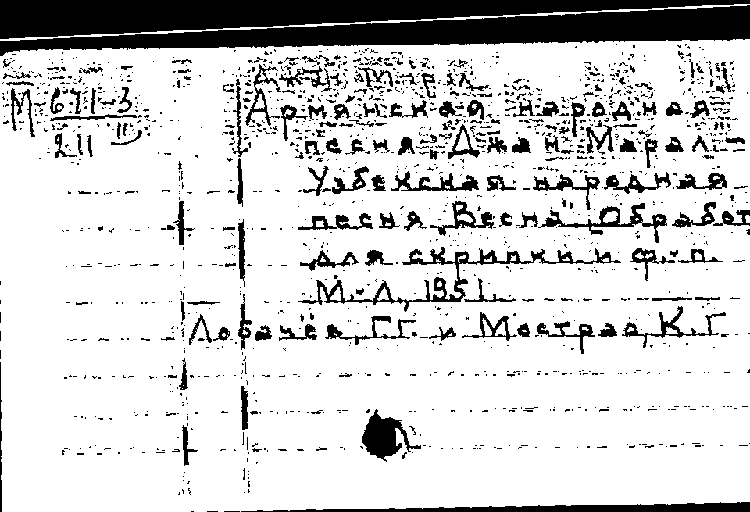 Джан Марал
М 671-3
2 11 II
Армянская народная
песня „Джан Марал.–
Узбекская народная
песня „Весна". Обработ
для скрипки и ф.-п.
М.-Л., 1951.
Лобачёв, Г.Г. и Мострас, К.Г